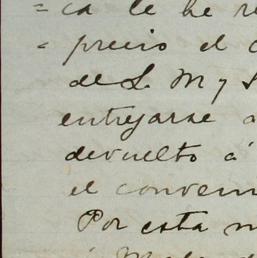 = ca le he re
= precio el c
de S. M y S
entregarse a
devuelto á
el conveni
Por esta m